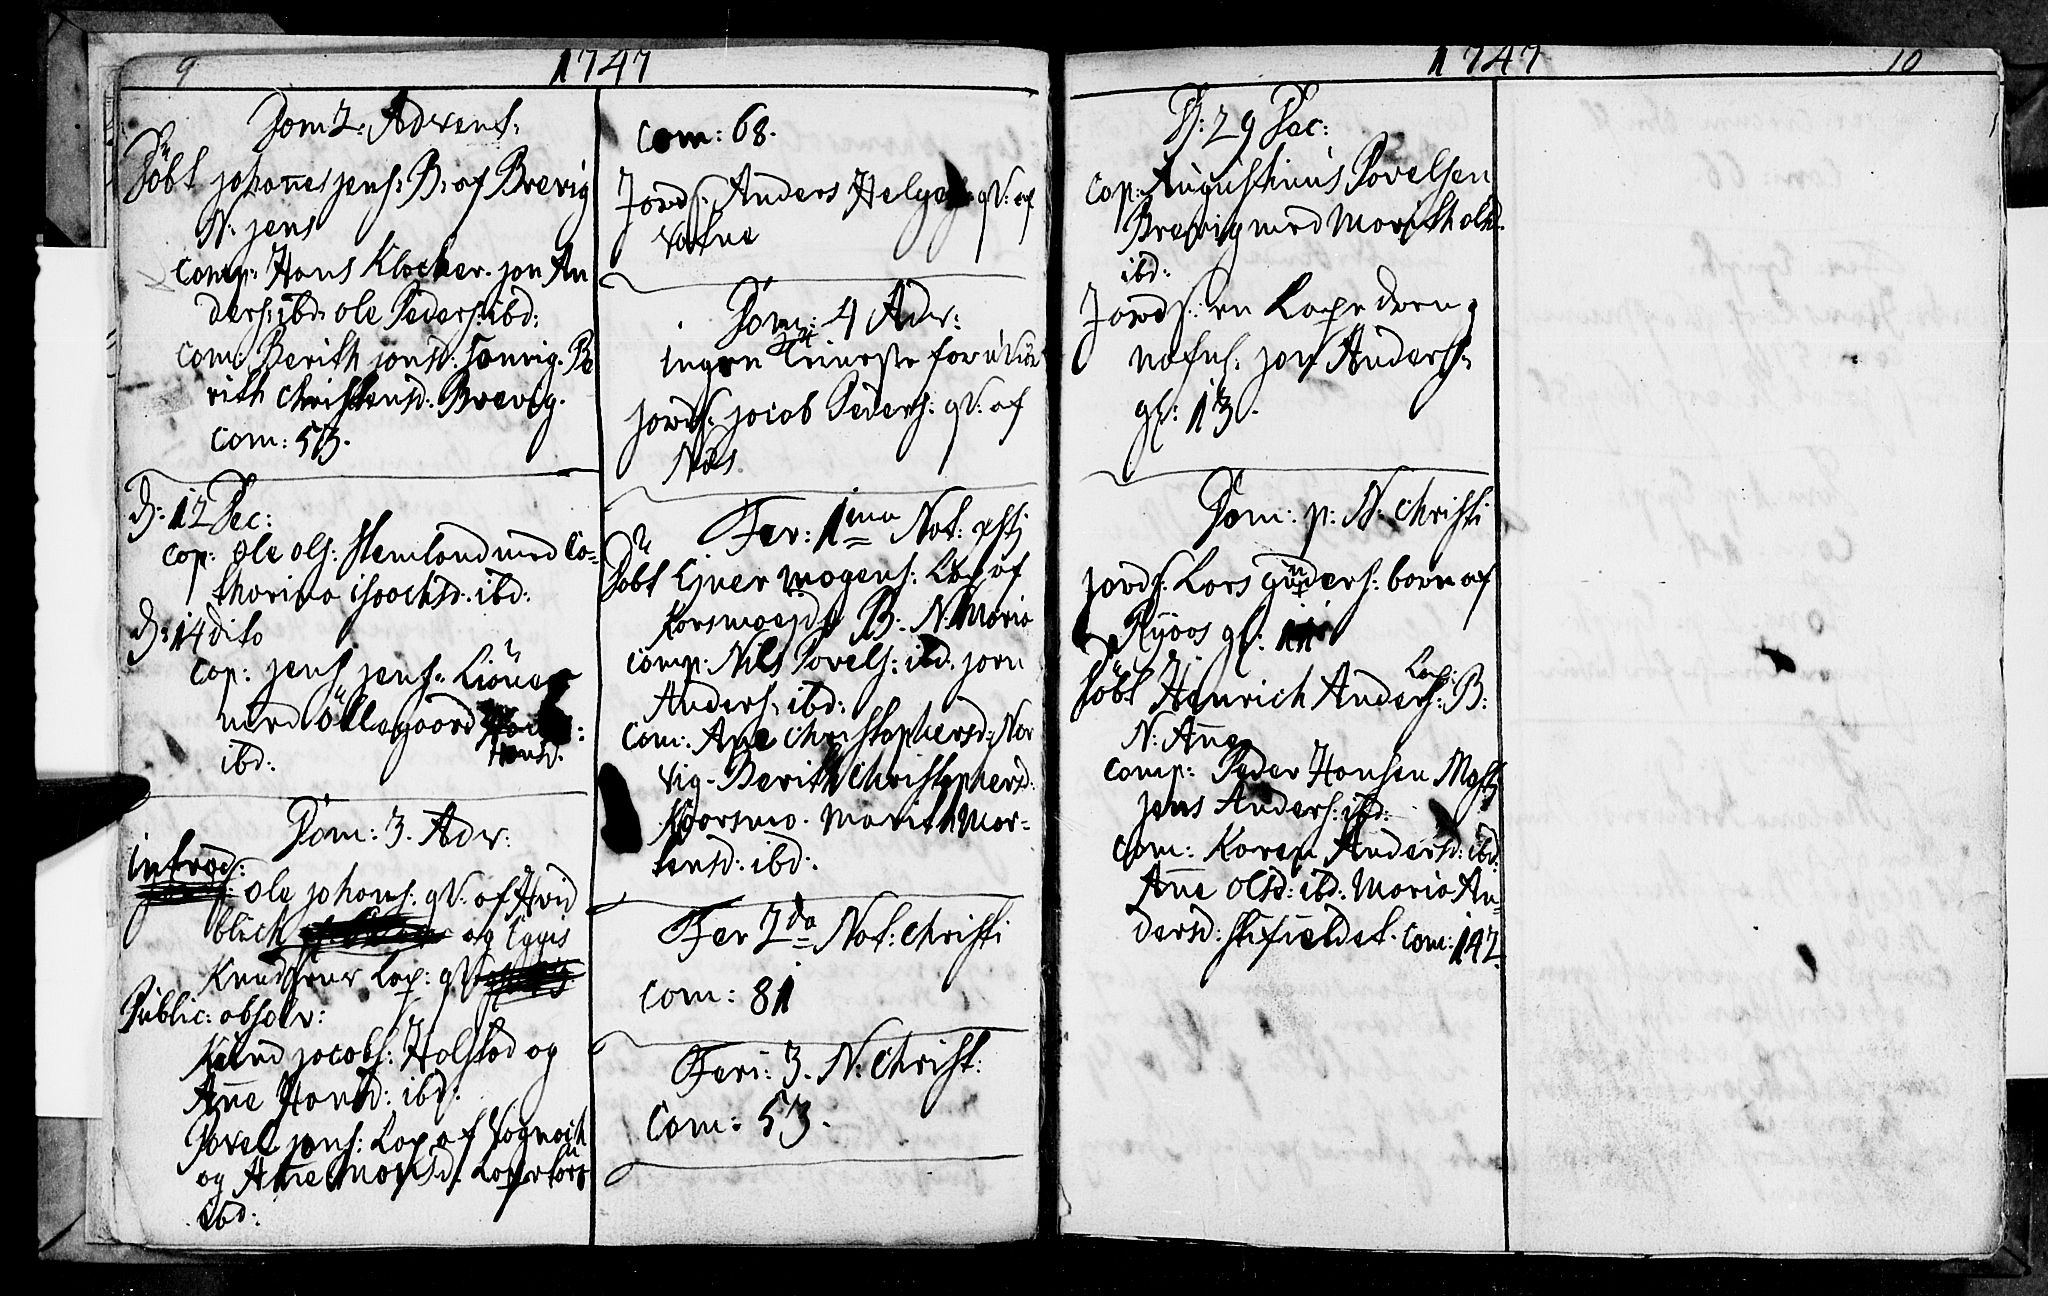 9
1747
Dom 2: Advent:
Döbt johannes jens: B: af Brevig
N: jens
Comp: Hans Klocker. jon An
ders: ibd: ole Peders: ibd:
Com: Berith jonsd: Be
rith Christensd: Brevig.
Com: 53.
D: 12 Dec:
Cop: ole ols: Hemland med Ca-
tharina isaachsd. ibd:
D: 14 dito
Cop: jens jens:
med Ollegaard
Hansd:
ibd:
Dom: 3. Adv:
introd:
ole johans: gV: af Hvid
blick og Egges
Knudsens Lap: gV:
Public: absolv:
Knud jacobs: Halstad og
Ane Hansd: ibd:
Povel jens: Lap af
og Ane
ibd:
Com: 68.
Jords: Anders Helges: gV: af
Dom: 4 Adv:
ingen Tieneste for
jords: jacob Peders: gV: af
Næs.
Fer: 1ma Nat: Chsti
Döbt Ejner mogens: Lap af
Korsmoe B: N: Maria
Comp: Nils Povels: ibd. jorn
Anders: ibd:
Com: Ane Christophersd: Nor
vig. Berith Christophersd:
Korsmo. Marith Mor-
tensd: ibd:
Fer 2da Nat: Christi
Com: 81
Feri: 3. N: Christ:
Com: 53.
1747
10
D: 29 Dec:
Cop: Augustinus Povelsen
Brevig med Marith olsd.
ibd:
Jords: en Lape dreng
nafnl: jon Anders:
gl: 13.
Dom: p: N: Christi
jords: Lars gunders: barn af
Ryaas gl: 11
Lap:
Döbt Henrich Anders: B:
N: Ane
Comp: Peder Hansen
jens Anders: ibd:
Com: Karen Andersd: ibd.
Ane olsd: ibd: Maria An-
dersd: Com: 147.